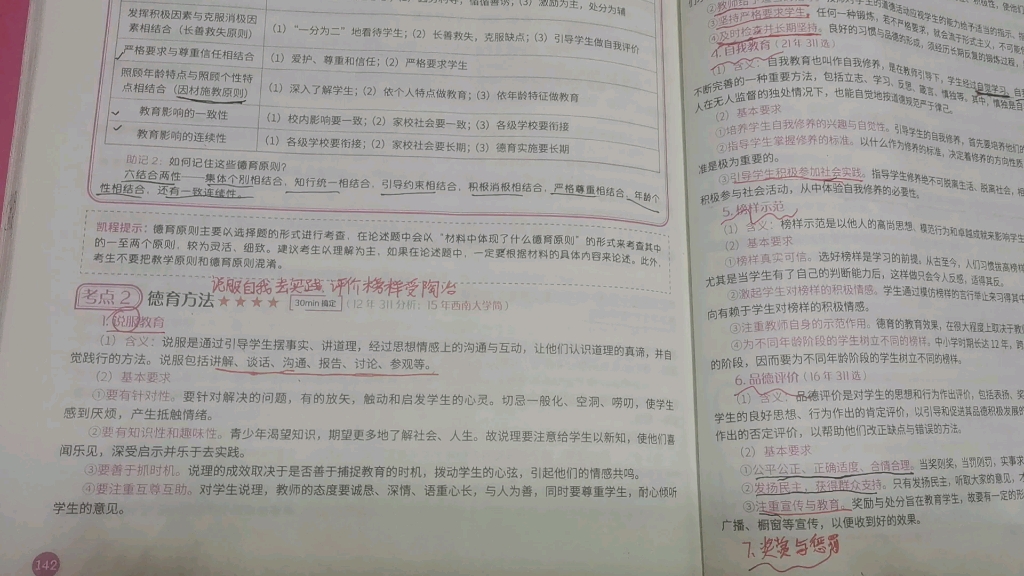 激励为主，处分为辅
发挥积极因素与克服消极因
素相结合（长善救失原则）
（1）“一分为二”地看待学生；（2）长善救失，克服缺点；（3）引导学生做自我评价
严格要求与尊重信任相结合
（1）爱护、尊重和信任；（2）严格要求学生
照顾年龄特点与照顾个性特
点相结合（因材施教原则）
（1）深入了解学生；（2）依个人特点做教育；（3）依年龄特征做教育
教育影响的一致性
（1）校内影响要一致；（2）家校社会要一致；（3）各级学校要衔接
教育影响的连续性
（1）各级学校要衔接；（2）家校社会要长期；（3）德育实施要长期
助记2：如何记住这些德育原则？
六结合两性——集体个别相结合，知行统一相结合，引导约束相结合，积极消极相结合，严格尊重相结合，年龄个
性相结合，还有一致连续性。
凯程提示：德育原则主要以选择题的形式进行考查，在论述题中会以“材料中体现了什么德育原则”的形式来考查其中
的一至两个原则，较为灵活、细致。建议考生以理解为主，如果在论述题中，一定要根据材料的具体内容来论述。此外，
考生不要把教学原则和德育原则混淆。
说服自我去实践 评价榜样受陶冶
考点2 德育方法★★★★ 30min搞定（12年311分析；15年西南大学简）
1. 说服教育
（1）含义：说服是通过引导学生摆事实、讲道理，经过思想情感上的沟通与互动，让他们认识道理的真谛，并自
觉践行的方法。说服包括讲解、谈话、沟通、报告、讨论、参观等。
（2）基本要求
①要有针对性。要针对解决的问题，有的放矢，触动和启发学生的心灵。切忌一般化、空洞、唠叨，使学生
感到厌烦，产生抵触情绪。
②要有知识性和趣味性。青少年渴望知识，期望更多地了解社会、人生。故说理要注意给学生以新知，使他们喜
闻乐见，深受启示并乐于去实践。
③要善于抓时机。说理的成效取决于是否善于捕捉教育的时机，拨动学生的心弦，引起他们的情感共鸣。
④要注重互尊互助。对学生说理，教师的态度要诚恳、深情、语重心长，与人为善，同时要尊重学生，耐心倾听
学生的意见。
142
③坚持严格要求学生。任何一种锻炼，若不严格要求，就会流于形式主义，不可能
④及时检查并长期坚持。良好的习惯与品德的形成，须经历长期反复的锻炼过程，
4. 自我教育（21年311选）
（1）含义：自我教育也叫作自我修养，是在教师引导下，学生经过自觉学习、自
不断完善的一种重要方法，包括立志、学习、反思、箴言、慎独等。其中，慎独是
人在无人监督的独处情况下，也能自觉地按道德规范严于律己。
（2）基本要求
①培养学生自我修养的兴趣与自觉性。引导学生的自我修养，首先要培养他们的
②指导学生掌握修养的标准。以什么作为修养的标准，决定着修养的方向性质
准是极为重要的。
③引导学生积极参加社会实践。指导学生修养绝不可脱离生活、脱离社会，相
积极参与社会活动，从中体验自我修养的必要性。
5. 榜样示范
（1）含义：榜样示范是以他人的高尚思想、模范行为和卓越成就来影响学生
（2）基本要求
①榜样真实可信。选好榜样是学习的前提。从古至今，人们习惯拔高榜样
尤其是当学生有了自己的判断能力后，这样做只会令人反感，适得其反。
②激起学生对榜样的积极情感。学生通过模仿榜样的言行举止来习得其中
向有赖于学生对榜样的积极情感。
③注重教师自身的示范作用。德育的教育效果，在很大程度上取决于教
④为不同年龄阶段的学生树立不同的榜样。中小学时期长达12年，跨
的阶段，因而要为不同年龄阶段的学生树立不同的榜样。
6. 品德评价（16年311选）
（1）含义：品德评价是对学生的思想和行为作出评价，包括表扬、奖
学生的良好思想、行为作出的肯定评价，以引导和促进其品德积极发展的
作出的否定评价，以帮助他们改正缺点与错误的方法。
（2）基本要求
①公平公正、正确适度、合情合理。当奖则奖，当罚则罚，实事求
②发扬民主，获得群众支持。只有发扬民主，听取大家的意见，
③注重宣传与教育。奖励与处分旨在教育学生，故要有一定的形
广播、橱窗等宣传，以便收到好的效果。
7. 奖赏与惩罚